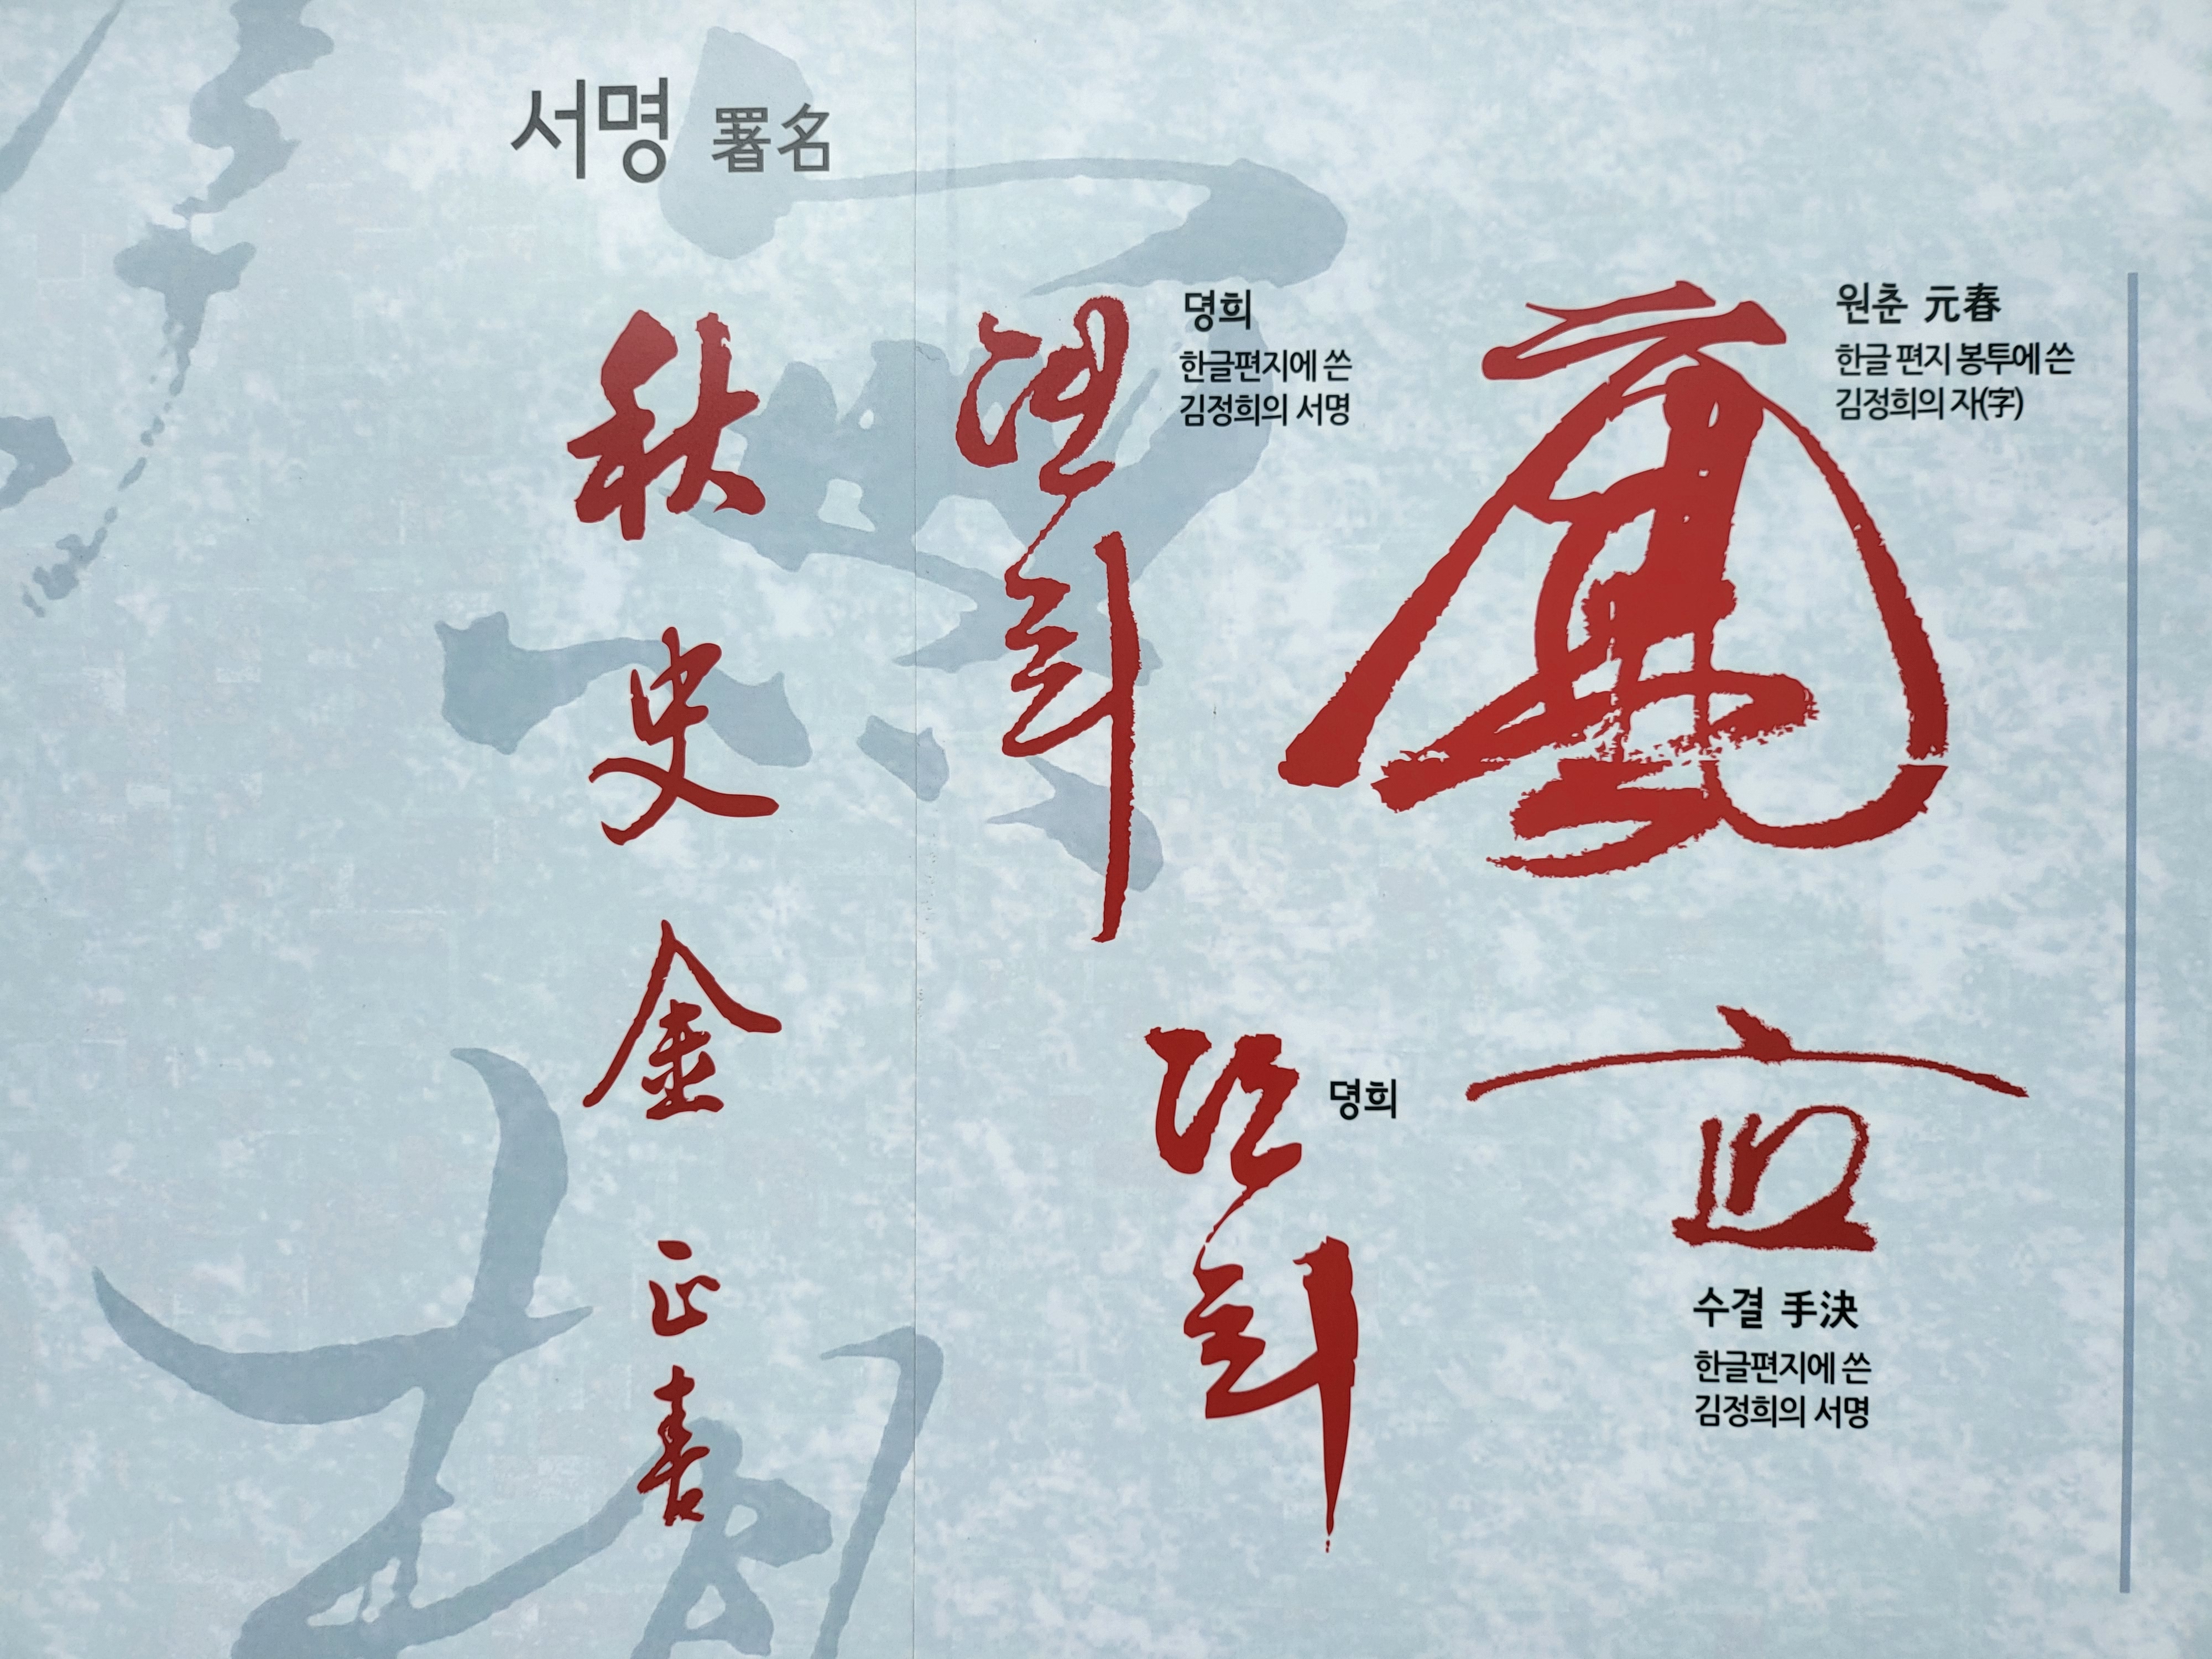 서명 署名
秋史金正喜
뎡희
뎡희
한글편지에 쓴
김정희의 서명
뎡희
뎡희
원춘 元春
한글 편지 봉투에 쓴
김정희의 자(字)
수결 手決
한글편지에 쓴
김정희의 서명